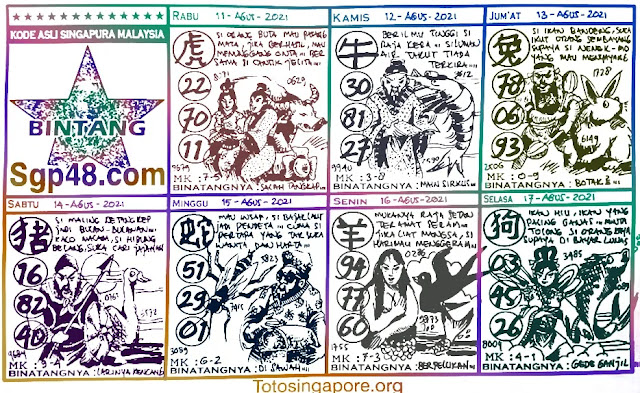 KODE ASLI SINGAPURA MALAYSIA
BINTANG
Sgp48.com
RABU 11-AGUS-2021
虎
SI ORANG BUTA MAU PASANG
MATA, JIKA BERHASIL, MAU
MENUNGGANG ONTA... BER
SAMA SI CANTIK JELITA...
22
70
11
8171
0629
9679
MK : 7-5
BINATANGNYA :
KAMIS 12-AGUS-2021
牛
BERILMU TINGGI SI
RAJA KERA... SILUMAN
AIR TAKUT TIADA
TERKIRA...
30
81
27
9612
9940
MK : 3-8
BINATANGNYA : MAIN SIRKUS...
JUM'AT 13-AGUS-2021
兔
SI IKAN BANDENG, SUKA
IKUT ORANG SEMBAYANG
SUPAYA SI NENEK-MO
YANG MAU
78
06
93
1728
6149
2006
MK : 0-9
BINATANGNYA : BOTAK
SABTU 14-AGUS-2021
猪
SI MALING KETANGKEP
JADI BULAN-BULANAN...
KALO NAGABA, SI HIDUNG
BELANG, SUKA CARI JAJANAN
16
82
40
0761
BINATANGNYA : LARINYA KENCANG
MINGGU 15-AGUS-2021
蛇
MAU INSAP, SI BAJAK LAUT
JADI PENDETA... CUMA SI
PERTAPA YANG TAK SUKA
WANITA DAN HARTA...
51
29
01
7415
3089
MK : 6-2
BINATANGNYA : DI SAWAH...
SENIN 16-AGUS-2021
羊
MUKANYA RAJA SETAN
TERLIHAT SERAM...
JIKA LIAT MANGSA, SI
HARIMAU MENGGERAM...
94
77
60
0286
5873
1755
MK : 7-3
BINATANGNYA : BERPELUKAN...
SELASA 17-AGUS-2021
狗
IKAN HIU, IKAN YANG
PALING GANAS... MINTA
TOLONG SI ORANG KAYA
SUPAYA DI BAYAR LUNAS
03
45
26
3485
8009
MK : 4-1
BINATANGNYA : GEDE GANJIL
Totosingapore.org